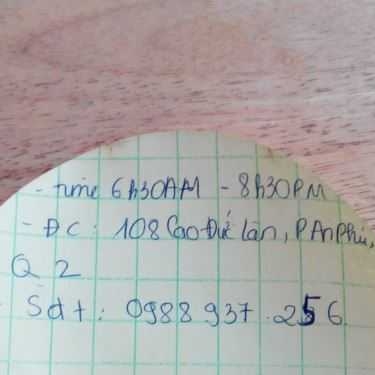 - time 6h30AM - 8h30PM
- ĐC: 108 Cao Đức Lân, P An Phú,
Q 2
Sđt: 0988 937.256